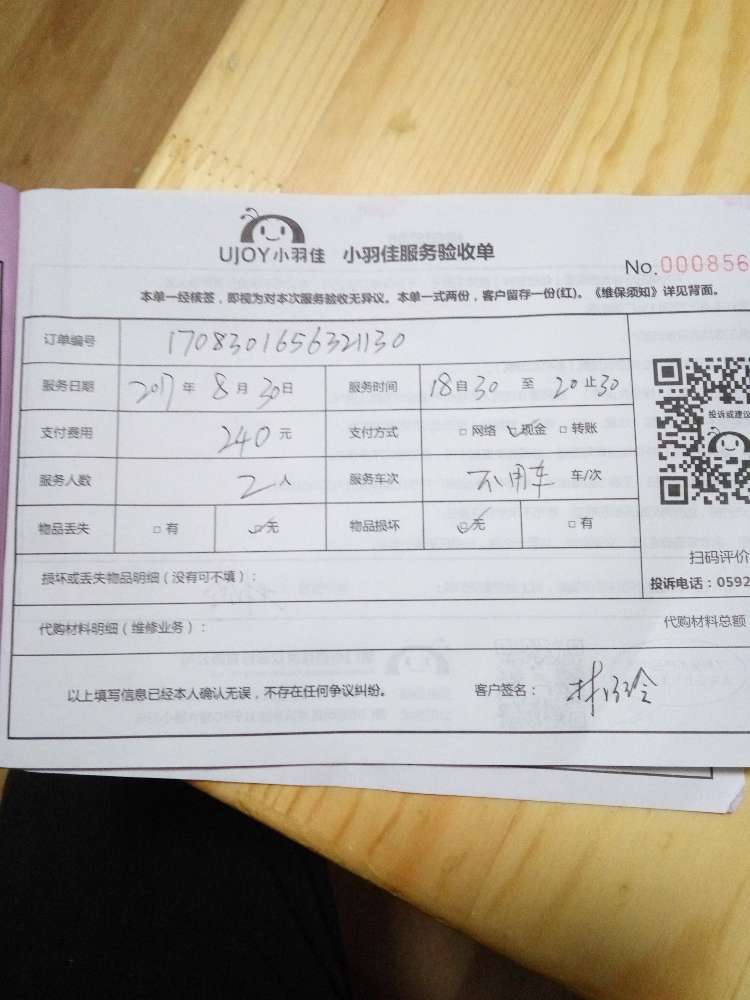 UJOY小羽佳 小羽佳服务验收单
No.000856
本单一经核签，即视为对本次服务验收无异议。本单一式两份，客户留存一份(红)。《维保须知》详见背面。
订单编号 1708301656321130
服务日期 2017年8月30日 服务时间 18自30至20止30
支付费用 240元 支付方式 □网络 ☑现金 □转账
投诉或建议
服务人数 2人 服务车次 不用车 车/次
物品丢失 □有 ☑无 物品损坏 ☑无 □有
扫码评价
损坏或丢失物品明细（没有可不填）：
投诉电话：0592
代购材料明细（维修业务）： 代购材料总额
以上填写信息已经本人确认无误，不存在任何争议纠纷。 客户签名：